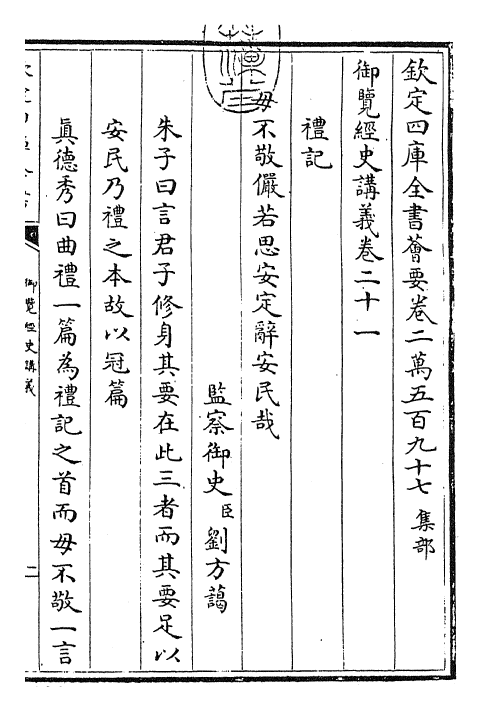 欽定四庫全書薈要卷二萬五百九十七 集部
御覽經史講義卷二十一
禮記
毋不敬儼若思安定辭安民哉
監察御史臣劉方藹
朱子曰言君子修身其要在此三者而其要足以
安民乃禮之本故以冠篇
真德秀曰曲禮一篇為禮記之首而毋不敬一言
御覽經史講義
二